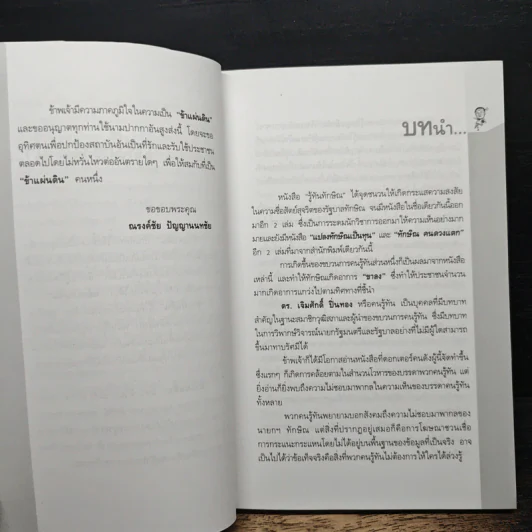 ข้าพเจ้ามีความภาคภูมิใจในความเป็น "ข้าแผ่นดิน"
และขออนุญาตทุกท่านใช้นามปากกาอันสูงส่งนี้ โดยจะขอ
อุทิศตนเพื่อปกป้องสถาบันอันเป็นที่รักและรับใช้ประชาชน
ตลอดไปโดยไม่หวั่นไหวต่ออันตรายใดๆ เพื่อให้สมกับที่เป็น
"ข้าแผ่นดิน" คนหนึ่ง
ขอขอบพระคุณ
ณรงค์ชัย ปัญญานนทชัย
บทนำ...
หนังสือ "รู้ทันทักษิณ" ได้จุดชนวนให้เกิดกระแสความสงสัย
ในความซื่อสัตย์สุจริตของรัฐบาลทักษิณ จนมีหนังสือในชื่อเดียวกันนี้ออก
มาอีก 2 เล่ม ซึ่งเป็นการระดมนักวิชาการออกมาให้ความเห็นอย่างมาก
มายและยังมีหนังสือ "แปลงทักษิณเป็นทุน" และ "ทักษิณ คนลวงโลก"
อีก 2 เล่มที่มาจากสำนักพิมพ์เดียวกันนี้
การเกิดขึ้นของขบวนการคนรู้ทันส่วนหนึ่งก็เป็นผลมาจากหนังสือ
เหล่านี้ และทำให้ทักษิณเกิดอาการ "ขาลง" ซึ่งทำให้ประชาชนจำนวน
มากเกิดอาการแกว่งไปตามทิศทางที่ชี้นำ
ดร. เจิมศักดิ์ ปิ่นทอง หรือคนรู้ทัน เป็นบุคคลที่มีบทบาท
สำคัญในฐานะสมาชิกวุฒิสภาและผู้นำของขบวนการคนรู้ทัน ซึ่งมีบทบาท
ในการวิพากษ์วิจารณ์นายกรัฐมนตรีและรัฐบาลอย่างที่ไม่มีผู้ใดสามารถ
ขึ้นมาทาบรัศมีได้
ข้าพเจ้าก็ได้มีโอกาสอ่านหนังสือที่ดอกเตอร์คนดังผู้นี้จัดทำขึ้น
ซึ่งแรกๆ ก็เกิดการคล้อยตามในสำนวนโวหารของบรรดาพวกคนรู้ทัน แต่
ยิ่งอ่านก็ยิ่งพบถึงความไม่ชอบมาพากลในความเห็นของบรรดาคนรู้ทัน
ทั้งหลาย
พวกคนรู้ทันพยายามบอกสังคมถึงความไม่ชอบมาพากลของ
นายกฯ ทักษิณ แต่สิ่งที่ปรากฏอยู่เสมอก็คือการโฆษณาชวนเชื่อ
การกระแนะกระแหนโดยไม่ได้อยู่บนพื้นฐานของข้อมูลที่เป็นจริง อาจ
เป็นไปได้ว่าข้อเท็จจริงคือสิ่งที่พวกคนรู้ทันไม่ต้องการให้ใครได้ล่วงรู้